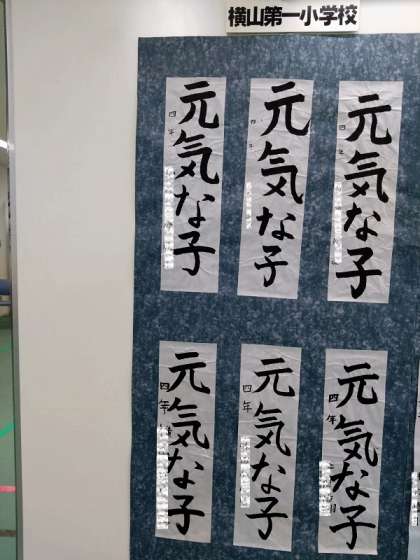 横山第一小学校
元気な子
四年
元気な子
四年
元気な子
四年
元気な子
四年
元気な子
四年
元気な子
四年